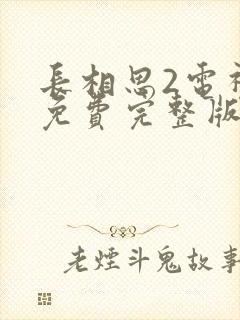 長相思2電視
免費完整版
老煙斗鬼故事